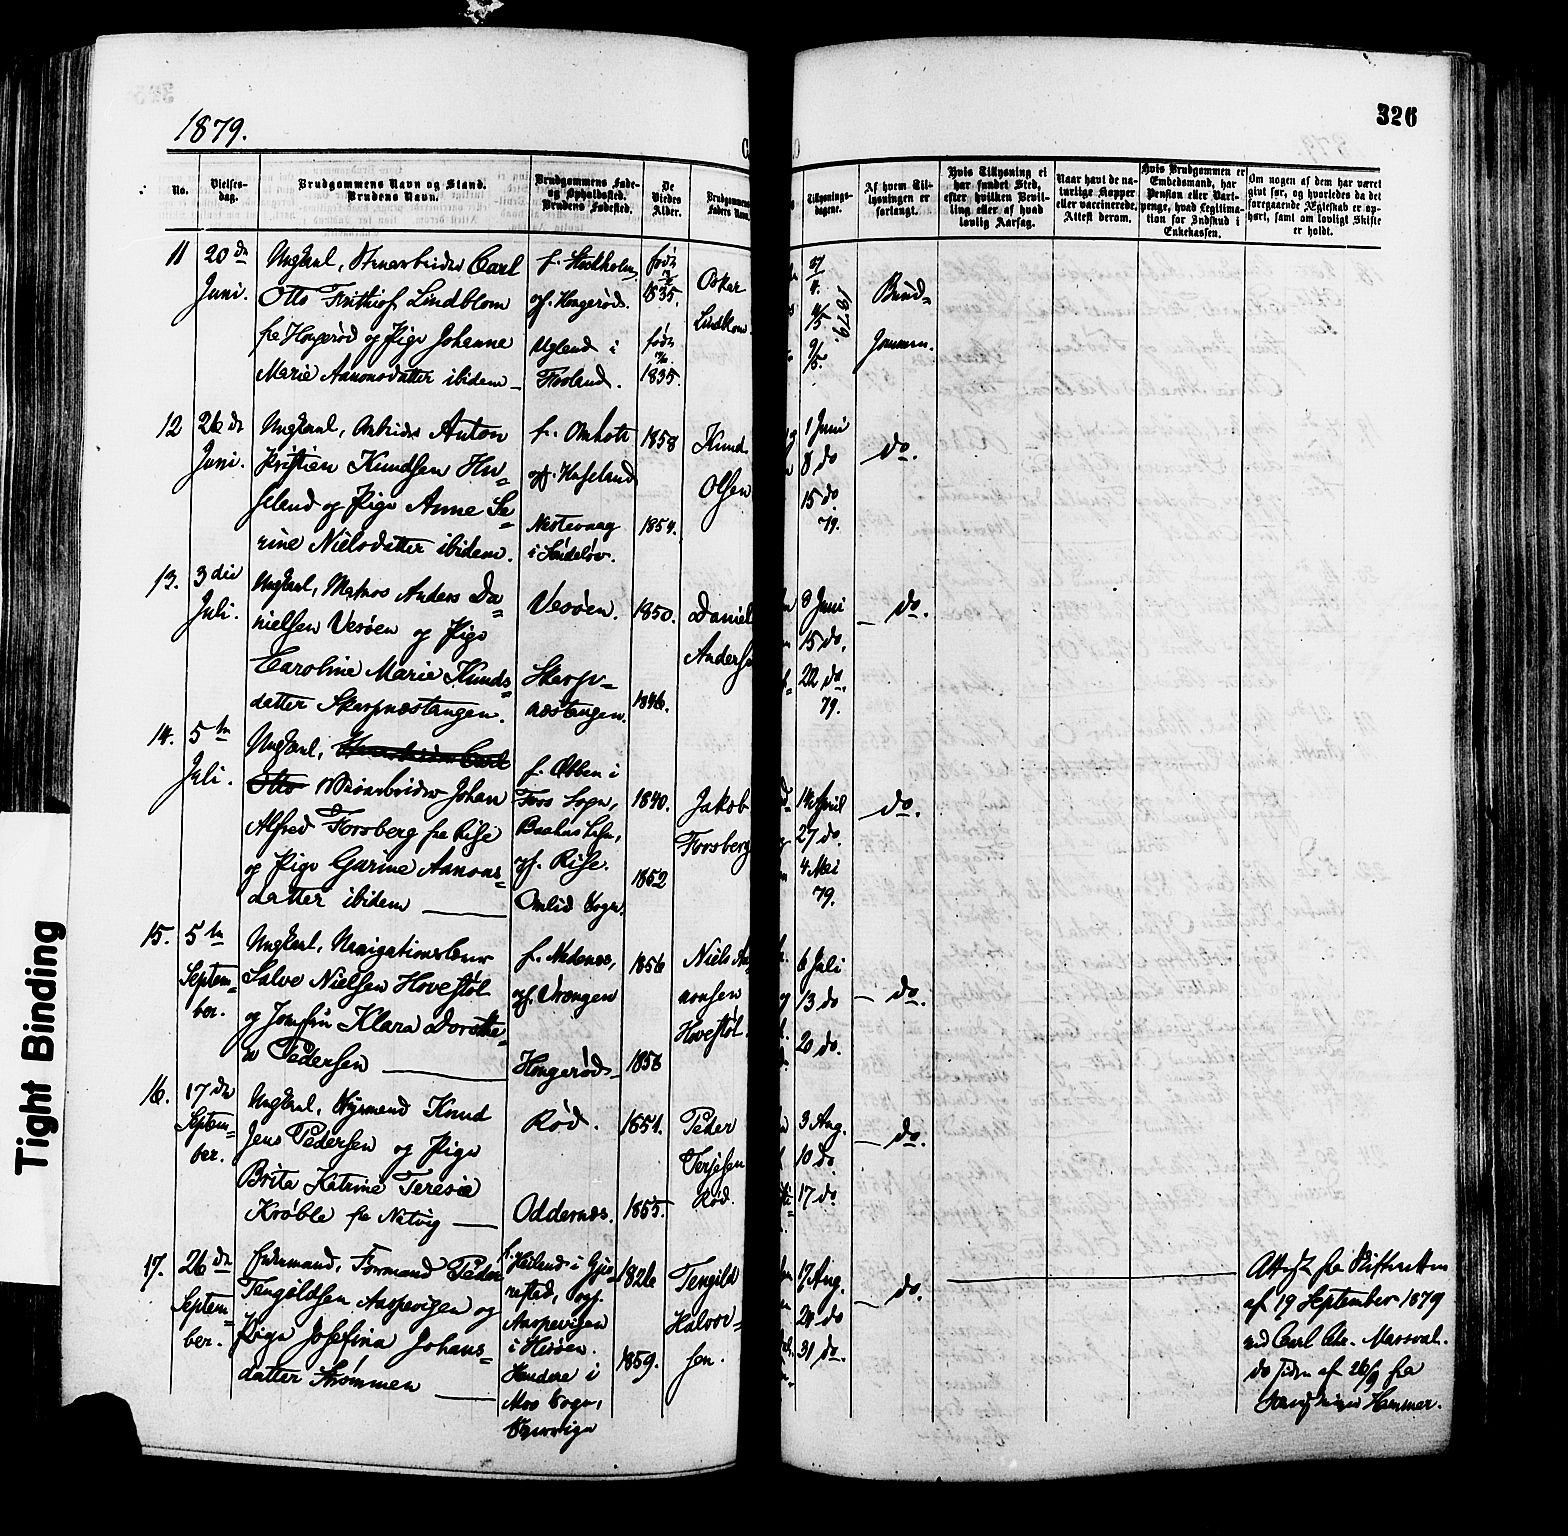 1879.
326
No.
Vielses-
dag.
Brudgommens Navn og Stand.
Brudens Navn.
Brudgommens Føde-
og Opholdssted.
Brudens Fødested.
De
Viedes
Alder.
Brudgommens
Faders Navn
Tillysnings-
dagene.
Af hvem Til-
lysningen er
forlangt.
Hvis Tillysning ei
har fundet Sted,
efter hvilken Bevil-
ling eller af hvad
lovlig Aarsag.
Naar havt de na-
turlige Kopper
eller vaccinerede.
Attest derom.
Hvis Brudgommen er
Embedsmand, har
Pension eller Vart-
penge, hvad Legitima-
tion for Indskud i
Enkekassen.
Om nogen af dem har været
givt før, og hvorledes da det
foregaaende Ægteskab er op-
hørt, samt om lovligt Skifte
er holdt.
11
20de
Juni.
Ungkarl, Stenarbeider Carl
Otto Frithiof Lindblom
fra Hongerød og Pige Johanne
Marie Aanonsdatter ibidem
f. Stockholm,
og. Hongerød.
Ugland i
Froland.
født
1835.
født
1835.
Oskar
Lindblom
1879.
Brud-
gommen.
12
26de
Juni.
Ungkarl, Arbeider Anton
Kristian Knudsen Ha-
seland og Pige Anne Se-
rine Nielsdatter ibidem.
f. Omholt
og. Haseland
Nestevaag
i Søndeløv.
1858
1854.
Knud
Olsen
1 Juni
8 do
15 do
79.
do.
13.
3die
Juli.
Ungkarl, Matros Anders Da-
nielsen Vesøen og Pige
Caroline Marie Knuds-
datter Skarpnæstangen.
Vesøen.
Skarp-
næstangen.
1850.
1846.
Daniel
Anderse
8 Juni
15 do.
22 do.
79.
do.
14.
5te
Juli.
Ungkarl,
Otto Veiarbeider Johan
Alfred Forsberg fra Rise
og Pige Garine Aanons-
datter ibidem
i
Foss Sogn,
Baahus Lehn,
og. Rise.
Omlid Sogn.
1840.
1852
Jakob
Forsberg
14 April
27 do.
4 Mai
79.
do.
15.
5te
Septem-
ber.
Ungkarl, Navigationslærer
Salve Nielsen Hovestøl
og Jomfru Klara Dorothe-
a Pedersen
f. Nedenæs,
og. Vrengen
Hongerød
1856
1856
Niels Aa-
nonsen
Hovestøl.
6 Juli
13 do
20 do.
do.
16.
17de
Septem-
ber.
Ungkarl, Styrmand Knud
Jens Pedersen og Pige
Brita Katrine Teresie
Krøble fra Natvig
Rød.
Oddernæs.
1854.
1855.
Peder
Terjesen
Rød.
3 Aug.
10 do
17 do.
do.
17.
26de
Septem-
ber.
Enkemand, Formand Peder
Tengelsdsen Aaspevigen og
Pige Josefina Johans-
datter Strømmen
i Gjer-
restad, og.
Aaspevigen
i Hisøen.
i
Mos Sogn,
Sverrige
1826
1859.
Tengild
Halvor-
sen.
17 Aug.
24 do
31 do.
do.
Attest fra Skifteretten
af 19 September 1879
do af 26/9 fra
Hammer.